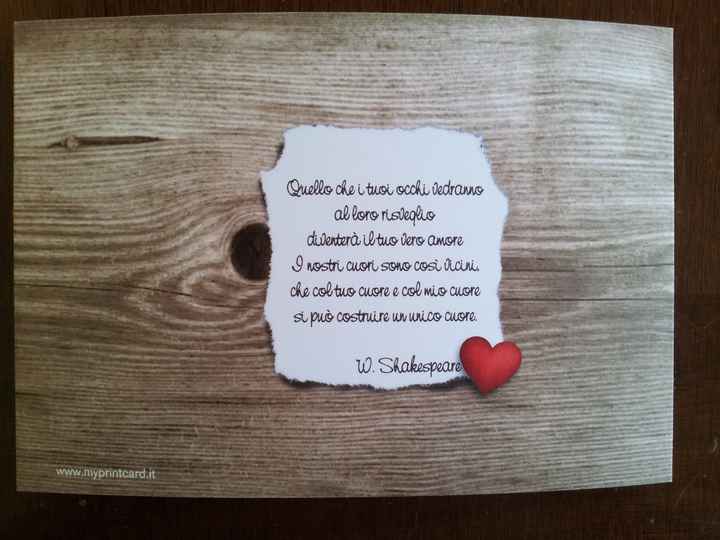 Quello che i tuoi occhi vedranno
al loro risveglio
diventerà il tuo vero amore
I nostri cuori sono così vicini,
che col tuo cuore e col mio cuore
si può costruire un unico cuore.
W. Shakespeare
www.myprintcard.it